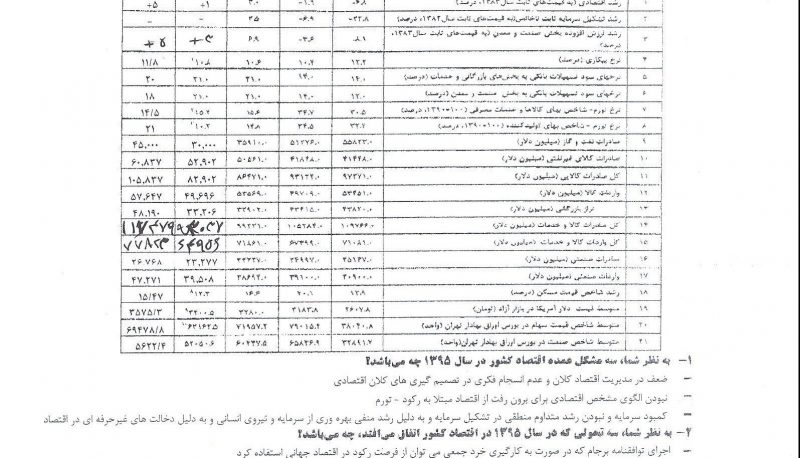 ۱ رشد اقتصادی (به قیمت‌های ثابت سال ۱۳۸۳، درصد) -۶.۸ -۱.۹ ۳.۰ +۱ +۵
۲ رشد تشکیل سرمایه ثابت ناخالص (به قیمت‌های ثابت سال ۱۳۸۳، درصد) -۲۳.۸ -۶.۹ ۳.۵ – –
۳ رشد ارزش افزوده بخش صنعت و معدن (به قیمت‌های ثابت سال ۱۳۸۳، درصد) -۸.۱ -۳.۶ ۶.۹
۴ نرخ بیکاری (درصد) ۱۲.۲ ۱۰.۴ ۱۰.۶ ۱۰.۸ ۱۱/۸
۵ نرخهای سود تسهیلات بانکی به بخش‌های بازرگانی و خدمات (درصد) ۱۴.۰ ۱۴.۰ ۲۱.۰ ۲۱.۰ ۲۰
۶ نرخهای سود تسهیلات بانکی به بخش صنعت و معدن (درصد) ۱۲.۰ ۱۴.۰ ۲۱.۰ ۲۱.۰ ۱۸
۷ نرخ تورم - شاخص بهای کالاها و خدمات مصرفی (۱۰۰=۱۳۹۰، درصد) ۳۰.۵ ۳۴.۷ ۱۵.۶ ۱۵.۲ ۱۴/۵
۸ نرخ تورم - شاخص بهای تولیدکننده (۱۰۰=۱۳۹۰، درصد) ۳۴.۵ ۱۴.۸ ۱۰.۲ ۲۱
۹ صادرات نفت و گاز (میلیون دلار) ۵۵۸۲۳.۰ ۵۱۲۷۶.۰ ۳۵۹۱۰.۰ ۳۰.۰۰۰ ۴۵.۰۰۰
۱۰ صادرات کالای غیرنفتی (میلیون دلار) ۴۱۴۴۸.۰ ۴۱۸۴۸.۰ ۵۰۵۶۱.۰ ۵۲.۹۰۲ ۶۰.۸۳۷
۱۱ کل صادرات کالایی (میلیون دلار) ۹۷۲۷۱.۰ ۹۳۱۲۴.۰ ۸۶۴۷۱.۰ ۸۲.۹۰۲ ۱۰۵.۸۳۷
۱۲ واردات کالا (میلیون دلار) ۵۳۴۵۱.۰ ۴۹۷۰۹.۰ ۵۳۵۶۹.۰ ۴۹.۶۹۶ ۵۷.۶۴۷
۱۳ تراز بازرگانی (میلیون دلار) ۴۳۸۲۰.۰ ۴۳۴۱۵.۰ ۳۲۹۰۲.۰ ۳۳.۲۰۶ ۴۸.۱۹۰
۱۴ کل صادرات کالا و خدمات (میلیون دلار) ۱۰۹۷۶۴.۰ ۱۰۵۲۸۴.۰ ۹۹۲۳۱.۰
۱۵ کل واردات کالا و خدمات (میلیون دلار) ۷۱۰۸۱.۰ ۶۷۴۹۹.۰ ۷۱۸۶۱.۰
۱۶ صادرات صنعتی (میلیون دلار) ۲۳.۲۷۷ ۲۶.۷۶۸
۱۷ واردات صنعتی (میلیون دلار) ۴۰۹۰۰.۰ ۳۹۱۰۰.۰ ۳۸۶۹۲.۰ ۳۹.۵۰۸ ۴۷.۲۷۱
۱۸ رشد شاخص قیمت مسکن (درصد) ۱۲.۹ ۲۰.۱ ۱۶.۶ ۱۲.۳ ۱۵/۴۷
۱۹ متوسط قیمت دلار آمریکا در بازار آزاد (تومان) ۲۶۰۷.۸ ۳۱۸۳.۸ ۳۲۸۰.۰ ۳۳۰۰.۵ ۳۵۷۵/۳
۲۰ متوسط شاخص قیمت سهام در بورس اوراق بهادار تهران (واحد) ۳۸۰۴۰.۸ ۷۹۰۱۵.۴ ۷۱۹۵۷.۲ ۶۳۱۶۲.۵ ۶۹۴۷۸/۸
۲۱ متوسط شاخص صنعت در بورس اوراق بهادار تهران (واحد) ۳۲۸۹۱.۷ ۶۵۸۲۶.۹ ۶۰۲۴۷.۵ ۵۲۰۵۰.۶ ۵۶۲۲/۴
۱- به نظر شما، سه مشکل عمده اقتصاد کشور در سال ۱۳۹۵ چه می‌باشد؟
– ضعف در مدیریت اقتصاد کلان و عدم انسجام فکری در تصمیم گیری های کلان اقتصادی
– نبودن الگوی مشخص اقتصادی برای برون رفت از اقتصاد مبتلا به رکود - تورم
– کمبود سرمایه و نبودن رشد متداوم منطقی در تشکیل سرمایه و به دلیل رشد منفی بهره وری از سرمایه و نیروی انسانی و به دلیل دخالت های غیرحرفه ای در اقتصاد
۲- به نظر شما، سه تحولی که در سال ۱۳۹۵ در اقتصاد کشور اتفاق می‌افتد، چه می‌باشد؟
– اجرای توافقنامه برجام که در صورت به کارگیری خرد جمعی می توان از فرصت رکود در اقتصاد جهانی استفاده کرد